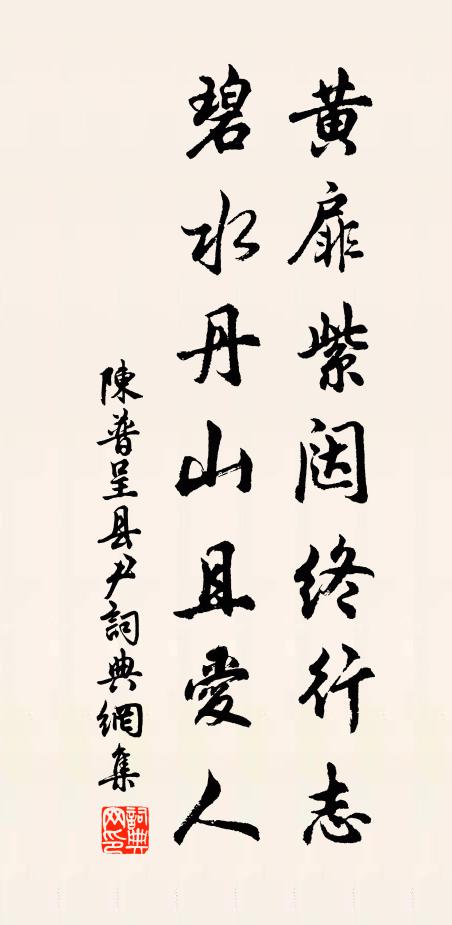 黃扉紫闼終行志
碧水丹山且愛人
陳普呈县尹詞典網集
詞典
网印